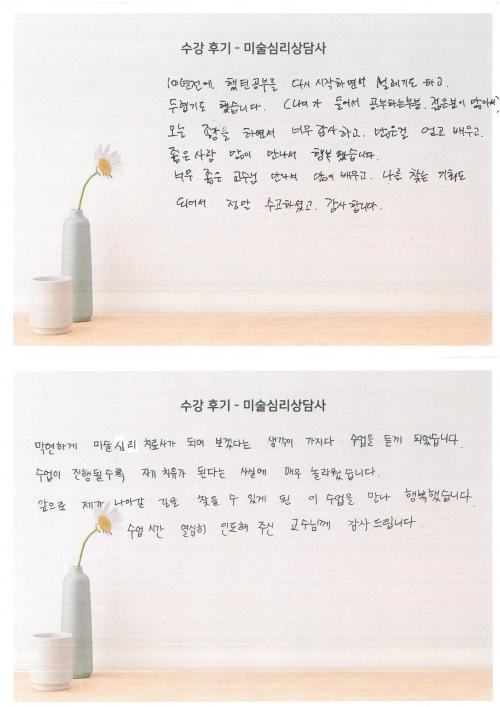 수강 후기 - 미술심리상담사
10여년전에 했던공부를 다시 시작하면서 설레기도 하고.
두렵기도 했습니다. (나이가 들어서 공부하는부분. 젊은분이 많아서)
오늘 종강을 하면서 너무 감사하고. 많은걸 얻고 배우고.
좋은사람 많이 만나서 행복했습니다.
너무 좋은 교수님 만나서 많이 배우고. 나를 찾는 기회도
되어서 정말 수고하셨고. 감사합니다.
수강 후기 - 미술심리상담사
막연하게 미술심리 치료사가 되어 보겠다는 생각이 가지다 수업을 듣게 되었습니다.
수업이 진행될수록 자기 치유가 된다는 사실에 매우 놀라웠습니다.
앞으로 제가 나아갈 길은 찾을 수 있게 된 이 수업을 만나 행복했습니다.
수업 시간 열심히 인도해 주신 교수님께 감사드립니다.